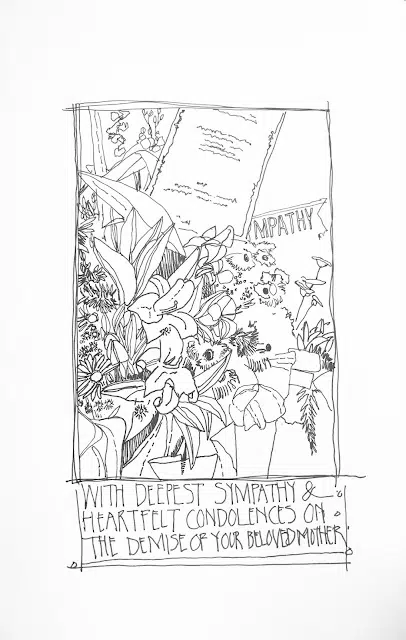 MPATHY
WITH DEEPEST SYMPATHY &
HEARTFELT CONDOLENCES ON
THE DEMISE OF YOUR BELOVED MOTHER